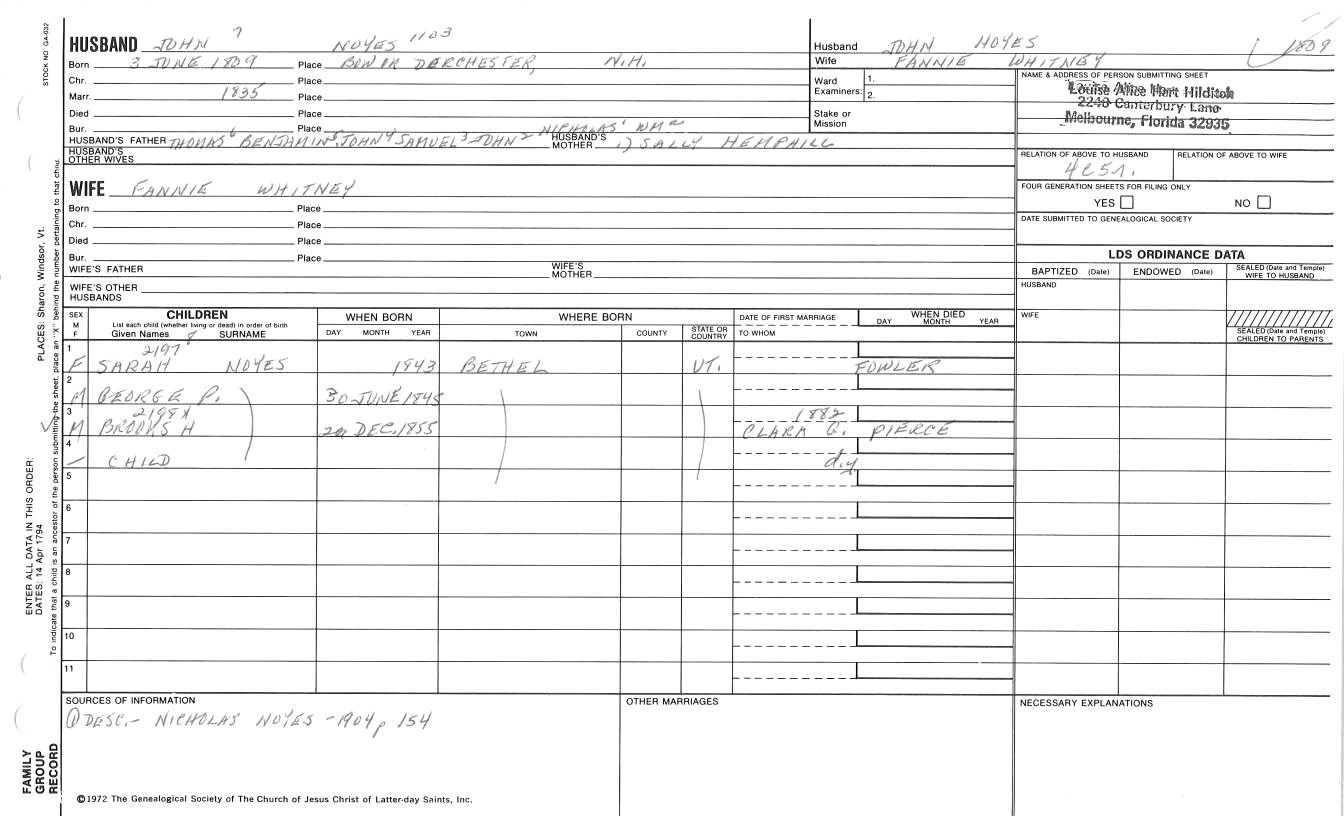 STOCK NO GA-032
HUSBAND JOHN 7 NOYES 1103
Born 3 JUNE 1809 Place BOW OR DERCHESTER, N.H.
Chr. Place
Marr. 1835 Place
Died Place
Bur. Place
HUSBAND'S FATHER THOMAS 6 BENJAMIN 5, JOHN 4 SAMUEL 3 JOHN 2 NICHOLAS 1 WM HUSBAND'S MOTHER 1) SALLY HEMPHILL
HUSBAND'S OTHER WIVES
Husband JOHN NOYES 1809
Wife FANNIE WHITNEY
Ward Examiners: 1.
2.
Stake or Mission
NAME & ADDRESS OF PERSON SUBMITTING SHEET
Louise Alice Hart Hilditch
2240 Canterbury Lane
Melbourne, Florida 32935
RELATION OF ABOVE TO HUSBAND RELATION OF ABOVE TO WIFE
4C5R.
FOUR GENERATION SHEETS FOR FILING ONLY
YES NO
DATE SUBMITTED TO GENEALOGICAL SOCIETY
WIFE FANNIE WHITNEY
Born Place
Chr. Place
Died Place
Bur. Place
WIFE'S FATHER WIFE'S MOTHER
WIFE'S OTHER HUSBANDS
LDS ORDINANCE DATA
BAPTIZED (Date) ENDOWED (Date) SEALED (Date and Temple) WIFE TO HUSBAND
HUSBAND
WIFE
SEALED (Date and Temple) CHILDREN TO PARENTS
SEX M F
CHILDREN
List each child (whether living or dead) in order of birth
Given Names 8 SURNAME
WHEN BORN
DAY MONTH YEAR
WHERE BORN
TOWN COUNTY STATE OR COUNTRY
DATE OF FIRST MARRIAGE
TO WHOM
WHEN DIED
DAY MONTH YEAR
1 2197
F SARAH NOYES 1843 BETHEL VT. FOWLER
2
M GEORGE P. 30 JUNE 1845
3 2198 X 1882
M BROOKS H DEC. 1855 CLARA G. PIERCE
4
CHILD d.y
5
6
7
8
9
10
11
SOURCES OF INFORMATION
① DESC.- NICHOLAS NOYES -1904 p 154
OTHER MARRIAGES
NECESSARY EXPLANATIONS
©1972 The Genealogical Society of The Church of Jesus Christ of Latter-day Saints, Inc.
FAMILY GROUP RECORD
ENTER ALL DATA IN THIS ORDER:
DATES: 14 Apr 1794
PLACES: Sharon, Windsor, Vt.
To indicate that a child is an ancestor of the person submitting the sheet, place an "X" behind the number pertaining to that child.